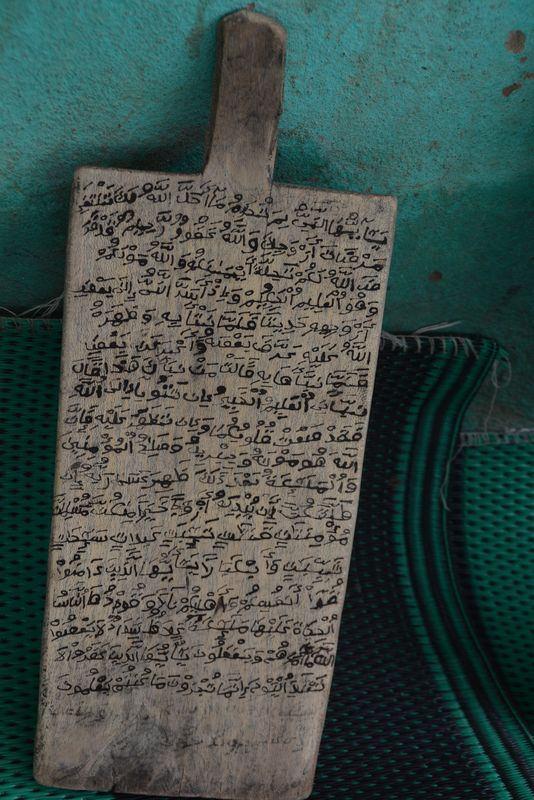 يأيها النبي لم تحرم ما أحل الله لك تبتغي
مرضات أزوجك والله غفور رحيم قد فرض
الله لكم تحلة أيمنكم والله موليكم
وهو العليم الحكيم وإذ أسر النبي إلى بعض
أزوجه حديثا فلما نبأت به وأظهره
الله عليه عرف بعضه وأعرض عن بعض
فلما نبأها به قالت من أنبأك هذا قال
نبأني العليم الخبير إن تتوبا إلى الله
فقد صغت قلوبكما وإن تظهرا عليه فإن
الله هو موليه وجبريل وصلح المؤمنين
والملئكة بعد ذلك ظهير عسى ربه إن
طلقكن أن يبدله أزوجا خيرا منكن مسلمت
مؤمنت قنتت تئبت عبدت سئحت
ثيبت وأبكارا يأيها الذين ءامنوا
قوا أنفسكم وأهليكم نارا وقودها الناس
والحجارة عليها ملئكة غلاظ شداد لا يعصون
الله ما أمرهم ويفعلون يأيها الذين كفروا لا
تعتذروا اليوم إنما تجزون ما كنتم تعملون